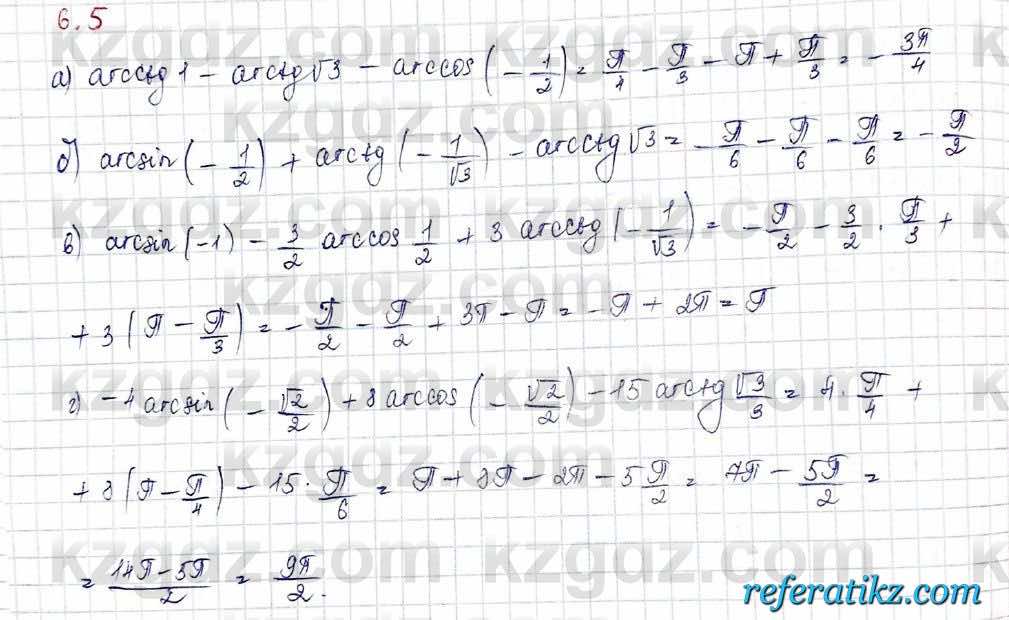 6.5
а) arcctg 1 − arctg √3 − arccos (− 1/2) = π/4 − π/3 − π + π/3 = − 3π/4
б) arcsin (− 1/2) + arctg (− 1/√3) − arcctg √3 = − π/6 − π/6 − π/6 = − π/2
в) arcsin (−1) − 3/2 arccos 1/2 + 3 arcctg (− 1/√3) = − π/2 − 3/2 · π/3 +
+ 3 (π − π/3) = − π/2 − π/2 + 3π − π = − π + 2π = π
г) −4 arcsin (− √2/2) + 8 arccos (− √2/2) − 15 arctg √3/3 = 4 · π/4 +
+ 8 (π − π/4) − 15 · π/6 = π + 8π − 2π − 5 π/2 = 7π − 5π/2 =
= 14π − 5π/2 = 9π/2.
referatikz.com